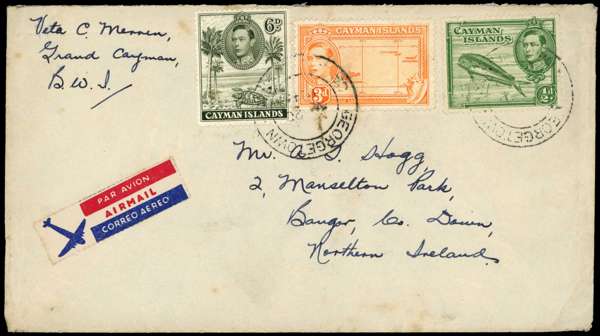 Veta C. Merren,
Grand Cayman,
B.W.I.
6D
CAYMAN ISLANDS
CAYMAN ISLANDS
3D
CAYMAN ISLANDS
½D
GEORGETOWN
GEORGETOWN
PAR AVION
AIRMAIL
CORREO AEREO
Mr. Hogg,
2, Manselton Park,
Bangor, Co. Down,
Northern Ireland.